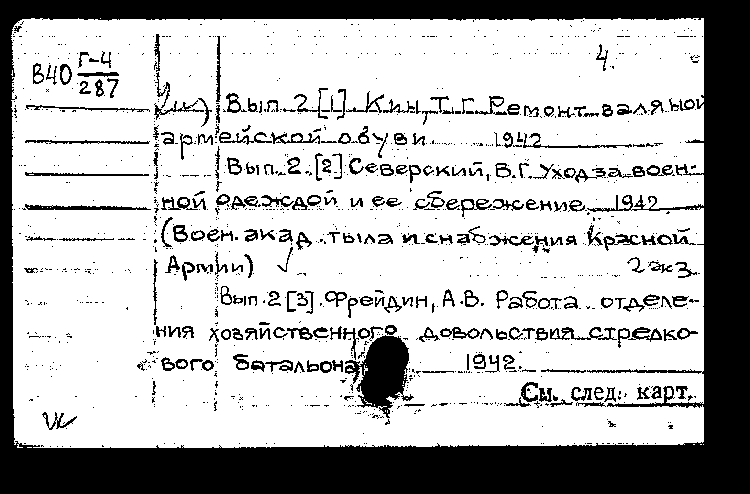 4.
В40 Г-4
287
Вып. 2 [1]. Кин, Т.Г. Ремонт валяной
армейской обуви 1942
Вып. 2. [2] Северский, В.Г. Уход за воен-
ной одеждой и ее сбережение 1942.
(Воен. акад. тыла и снабжения Красной
Армии) ✓ 2 экз
Вып. 2 [3]. Фрейдин, А.В. Работа отделе-
ния хозяйственного довольствия стрелко-
вого батальона 1942.
См. след. карт.